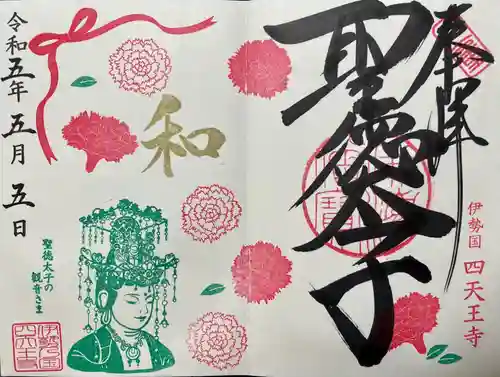 奉拝
聖徳太子
伊勢国 四天王寺
和
令和五年五月五日
聖徳太子の
観音さま